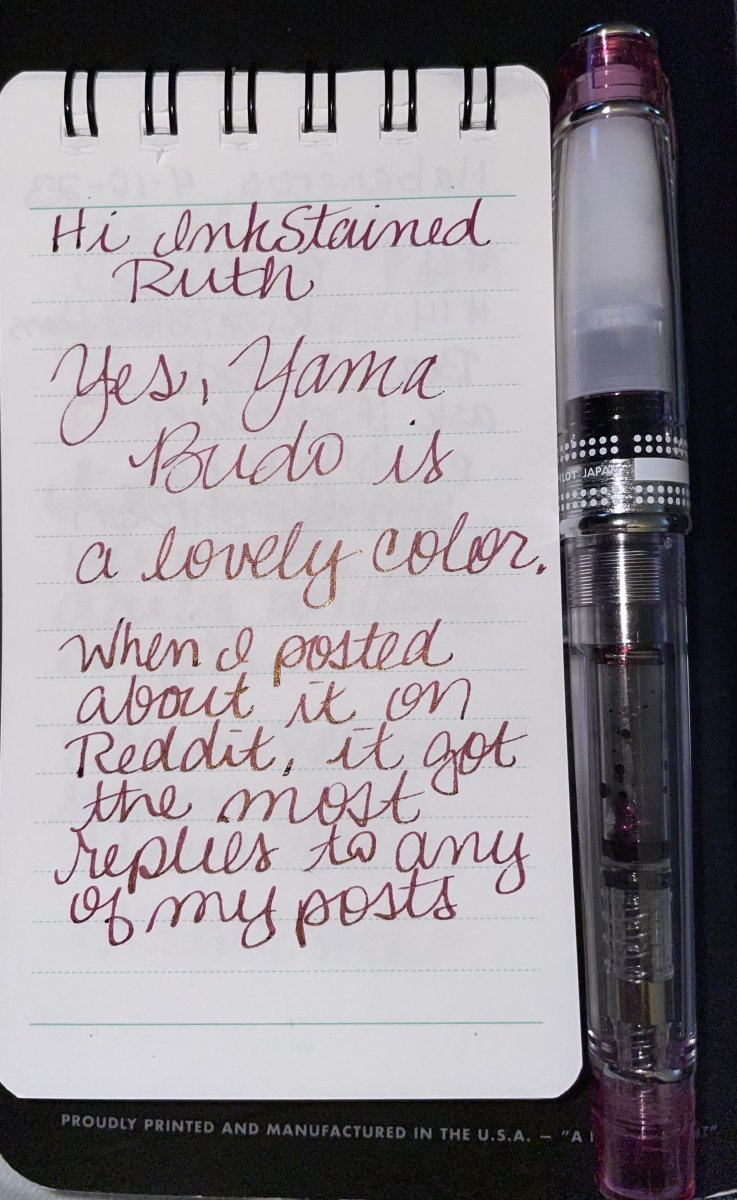 Hi InkStained
Ruth
Yes, Yama
Budo is
a lovely color.
When I posted
about it on
Reddit, it got
the most
replies to any
of my posts
JAPAN
PROUDLY PRINTED AND MANUFACTURED IN THE U.S.A. — "A